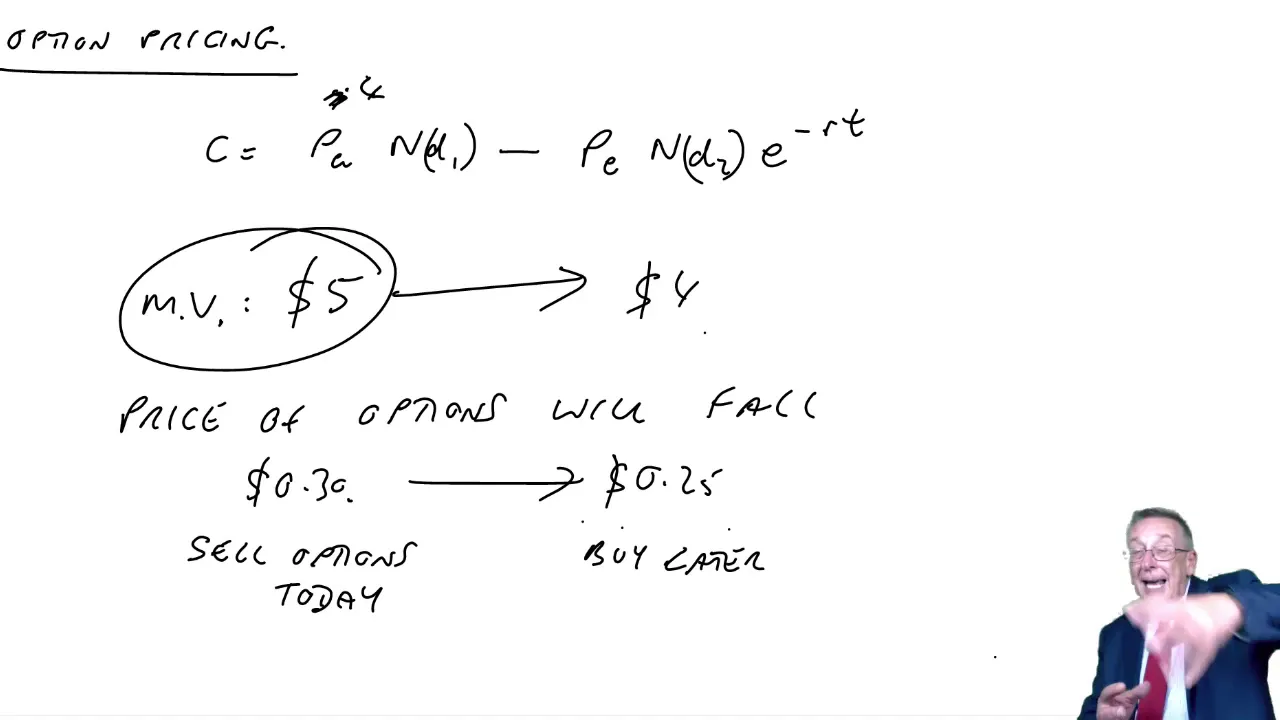 OPTION PRICING.
4
C = Pa N(d1) — Pe N(d2) e^-rt
M.V. : $5 → $4
PRICE OF OPTIONS WILL FALL
$0.30. → $0.25
SELL OPTIONS BUY LATER
TODAY